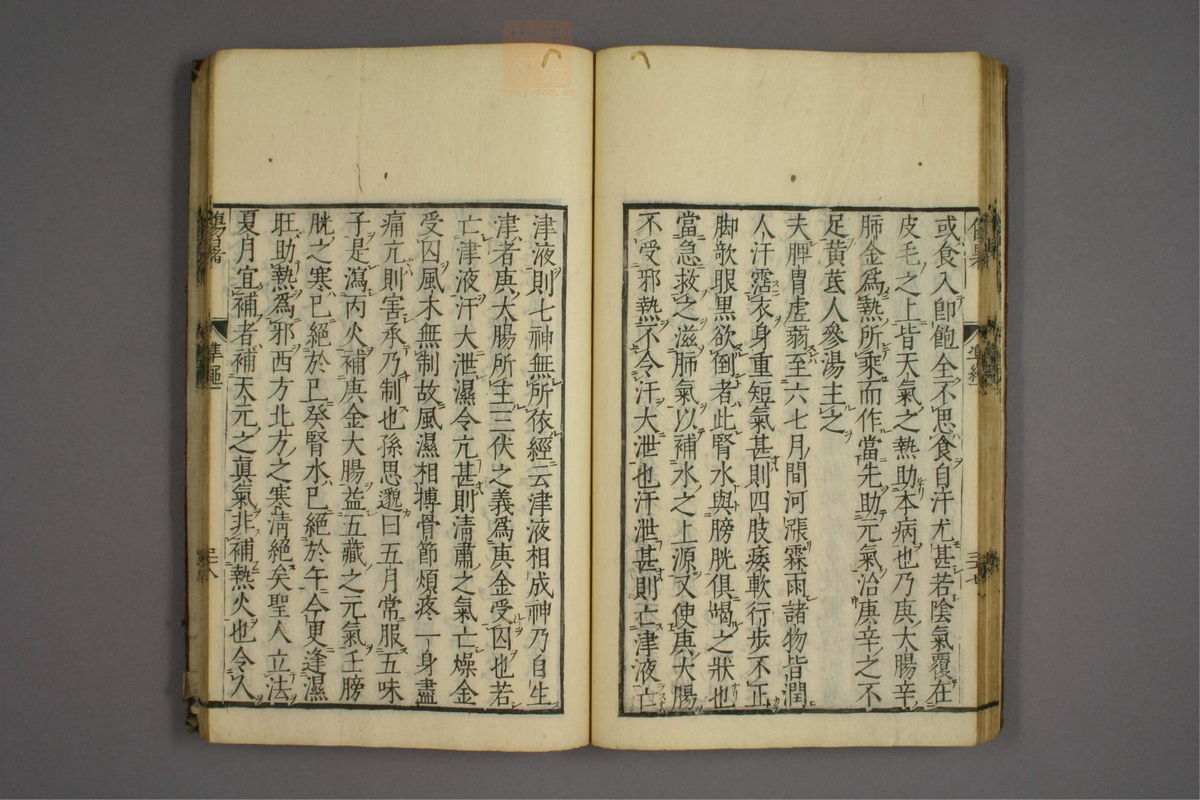 或食入即飽全不思食自汗尤甚若陰氣覆在
皮毛之上皆天氣之熱助本病也乃庚大腸辛
肺金爲熱所乘而作當先助元氣治庚辛之不
足黄芪人參湯主之
夫脾胃虚弱至六七月間河漲霖雨諸物皆潤
人汗霑衣身重短氣甚則四肢痿軟行步不正
脚欹眼黒欲倒者此腎水與膀胱俱竭之狀也
當急救之滋肺氣以補水之上源又使庚大腸
不受邪熱不令汗大泄也汗泄甚則亡津液亡
津液則七神無所依經云津液相成神乃自生
津者庚大腸所主三伏之義爲庚金受囚也若
亡津液汗大泄濕令亢甚則清肅之氣亡燥金
受囚風木無制故風濕相搏骨節煩疼一身盡
痛亢則害承乃制也孫思邈曰五月常服五味
子是瀉丙火補庚金大腸益五藏之元氣壬膀
胱之寒已絕於巳癸腎水已絕於午今更逢濕
旺助熱爲邪西方北方之寒清絕矣聖人立法
夏月宜補者補天元之眞氣非補熱火也令人
傷暑
準繩
三十八